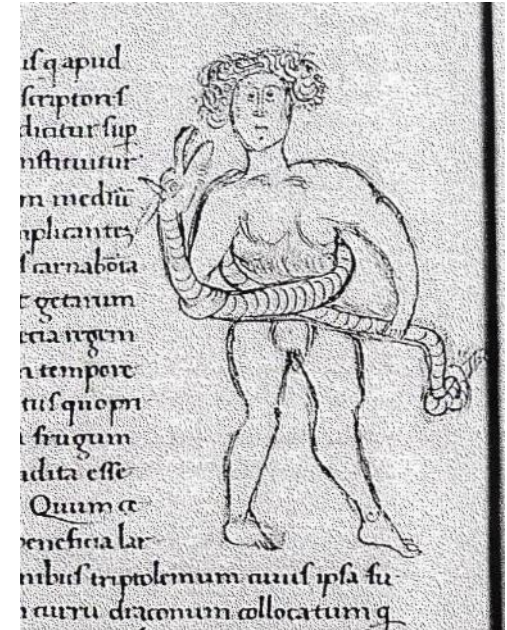 usq apud
scriptores
dicitur sup
nstituitur
m mediū
mplicantes
carnabota
getarum
regem
tempore
tus quo pri
frugum
ndita esse
Quum ce
beneficia lar
nibus triptolemum cuius ipsa fu
curru draconum collocatum q